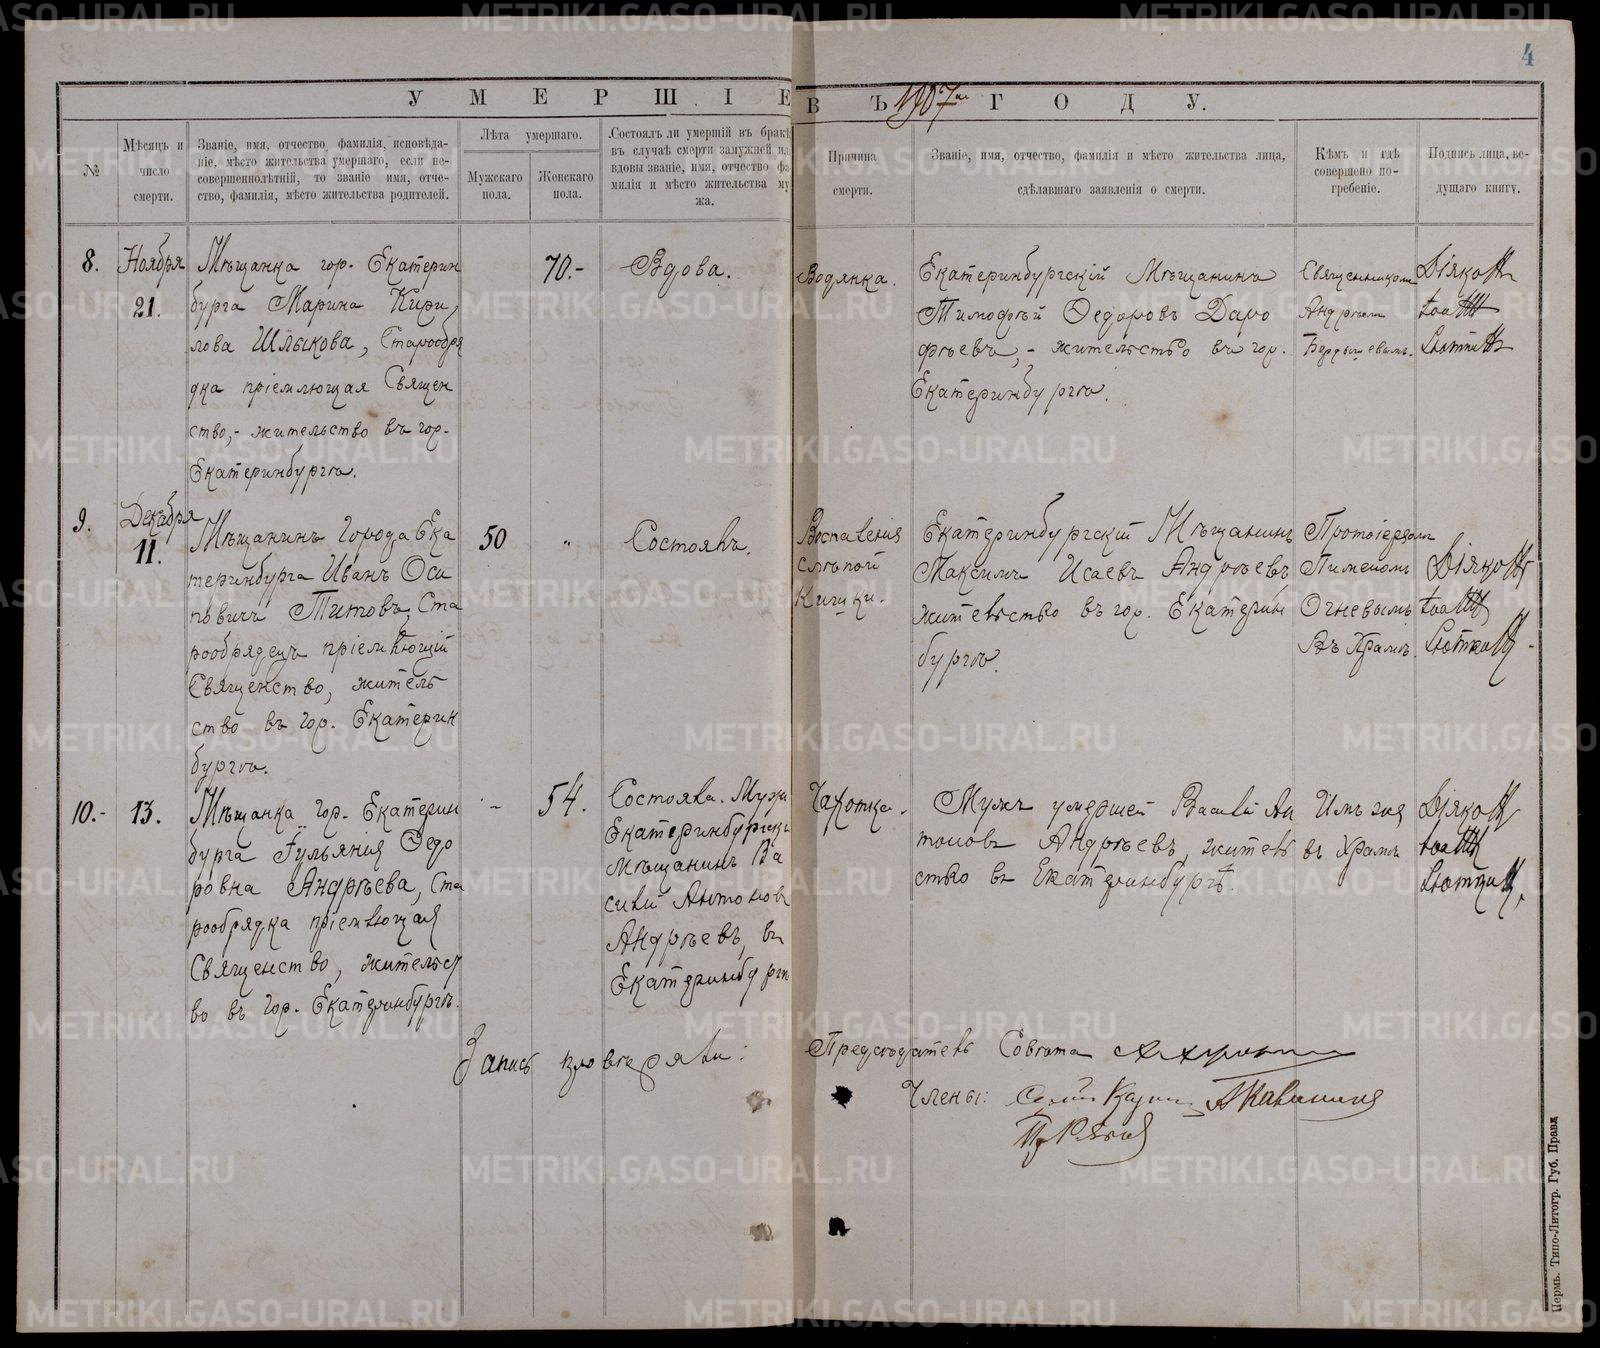 4
УМЕРШІЕ ВЪ 1907м ГОДУ.
№
Мѣсяцъ и
число
смерти.
Званіе, имя, отчество, фамилія, исповѣда-
ніе, мѣсто жительства умершаго, если не-
совершеннолѣтній, то званіе имя, отче-
ство, фамилія, мѣсто жительства родителей.
Лѣта умершаго.
Мужскаго
пола.
Женскаго
пола.
Состоялъ ли умершій въ бракѣ
въ случаѣ смерти замужней ил
вдовы званіе, имя, отчество фа
милія и мѣсто жительства му
жа.
Причина
смерти.
Званіе, имя, отчество, фамилія и мѣсто жительства лица,
сдѣлавшаго заявленія о смерти.
Кѣмъ и гдѣ
совершено по-
гребеніе.
Подпись лица, ве-
дущаго книгу.
8.
Ноября
21.
Мѣщанка гор. Екатерин
бурга Марина Кири
лова Шлыкова, Старообря
дка пріемлющая Священ
ство,- жительство въ гор.
Екатеринбургѣ.
70.-
Вдова.
Водянка.
Екатеринбургскій Мѣщанинъ
Тимофѣй Федоровъ Даро
фѣевъ,- жительство въ гор.
Екатеринбургѣ.
Священникомъ
Андреемъ
Бердышевымъ.
9.
Декабря
11.
Мѣщанинъ Города Ека
теринбурга Иванъ Оси
повичъ Титовъ, Ста
рообрядецъ пріемлющій
Священство, житель
ство въ гор. Екатерин
бургѣ.
50
"
Состоялъ.
Воспаления
слѣпой
Кишки.
Екатеринбургский Мѣщанинъ
Максимъ Исаевъ Андрѣевъ
жительство въ гор. Екатерин
бургѣ.
Протоіереемъ
Пименомъ
Огневымъ
Въ Храмѣ.
10.-
13.
Мѣщанка гор. Екатерин
бурга Іульянія Федо
ровна Андрѣева, Ста
рообрядка пріемлющая
Священство, жительст
во въ гор. Екатеринбургѣ.
-
54.
Состояла. Мужъ
Екатеринбургскі
мѣщанинъ Ва
силій Антоновъ
Андрѣевъ, въ
Екатеринбургѣ
Чахотка.
Мужъ умершей Василій Ан
тоновъ Андрѣевъ, житель
ство въ Екатеринбургѣ.
Имъ же
въ Храмѣ
Запись
Предсѣдатель Совѣта
Члены:
Пермь. Типо-Литогр. Губ. Правл
METRIKI.GASO-URAL.RU